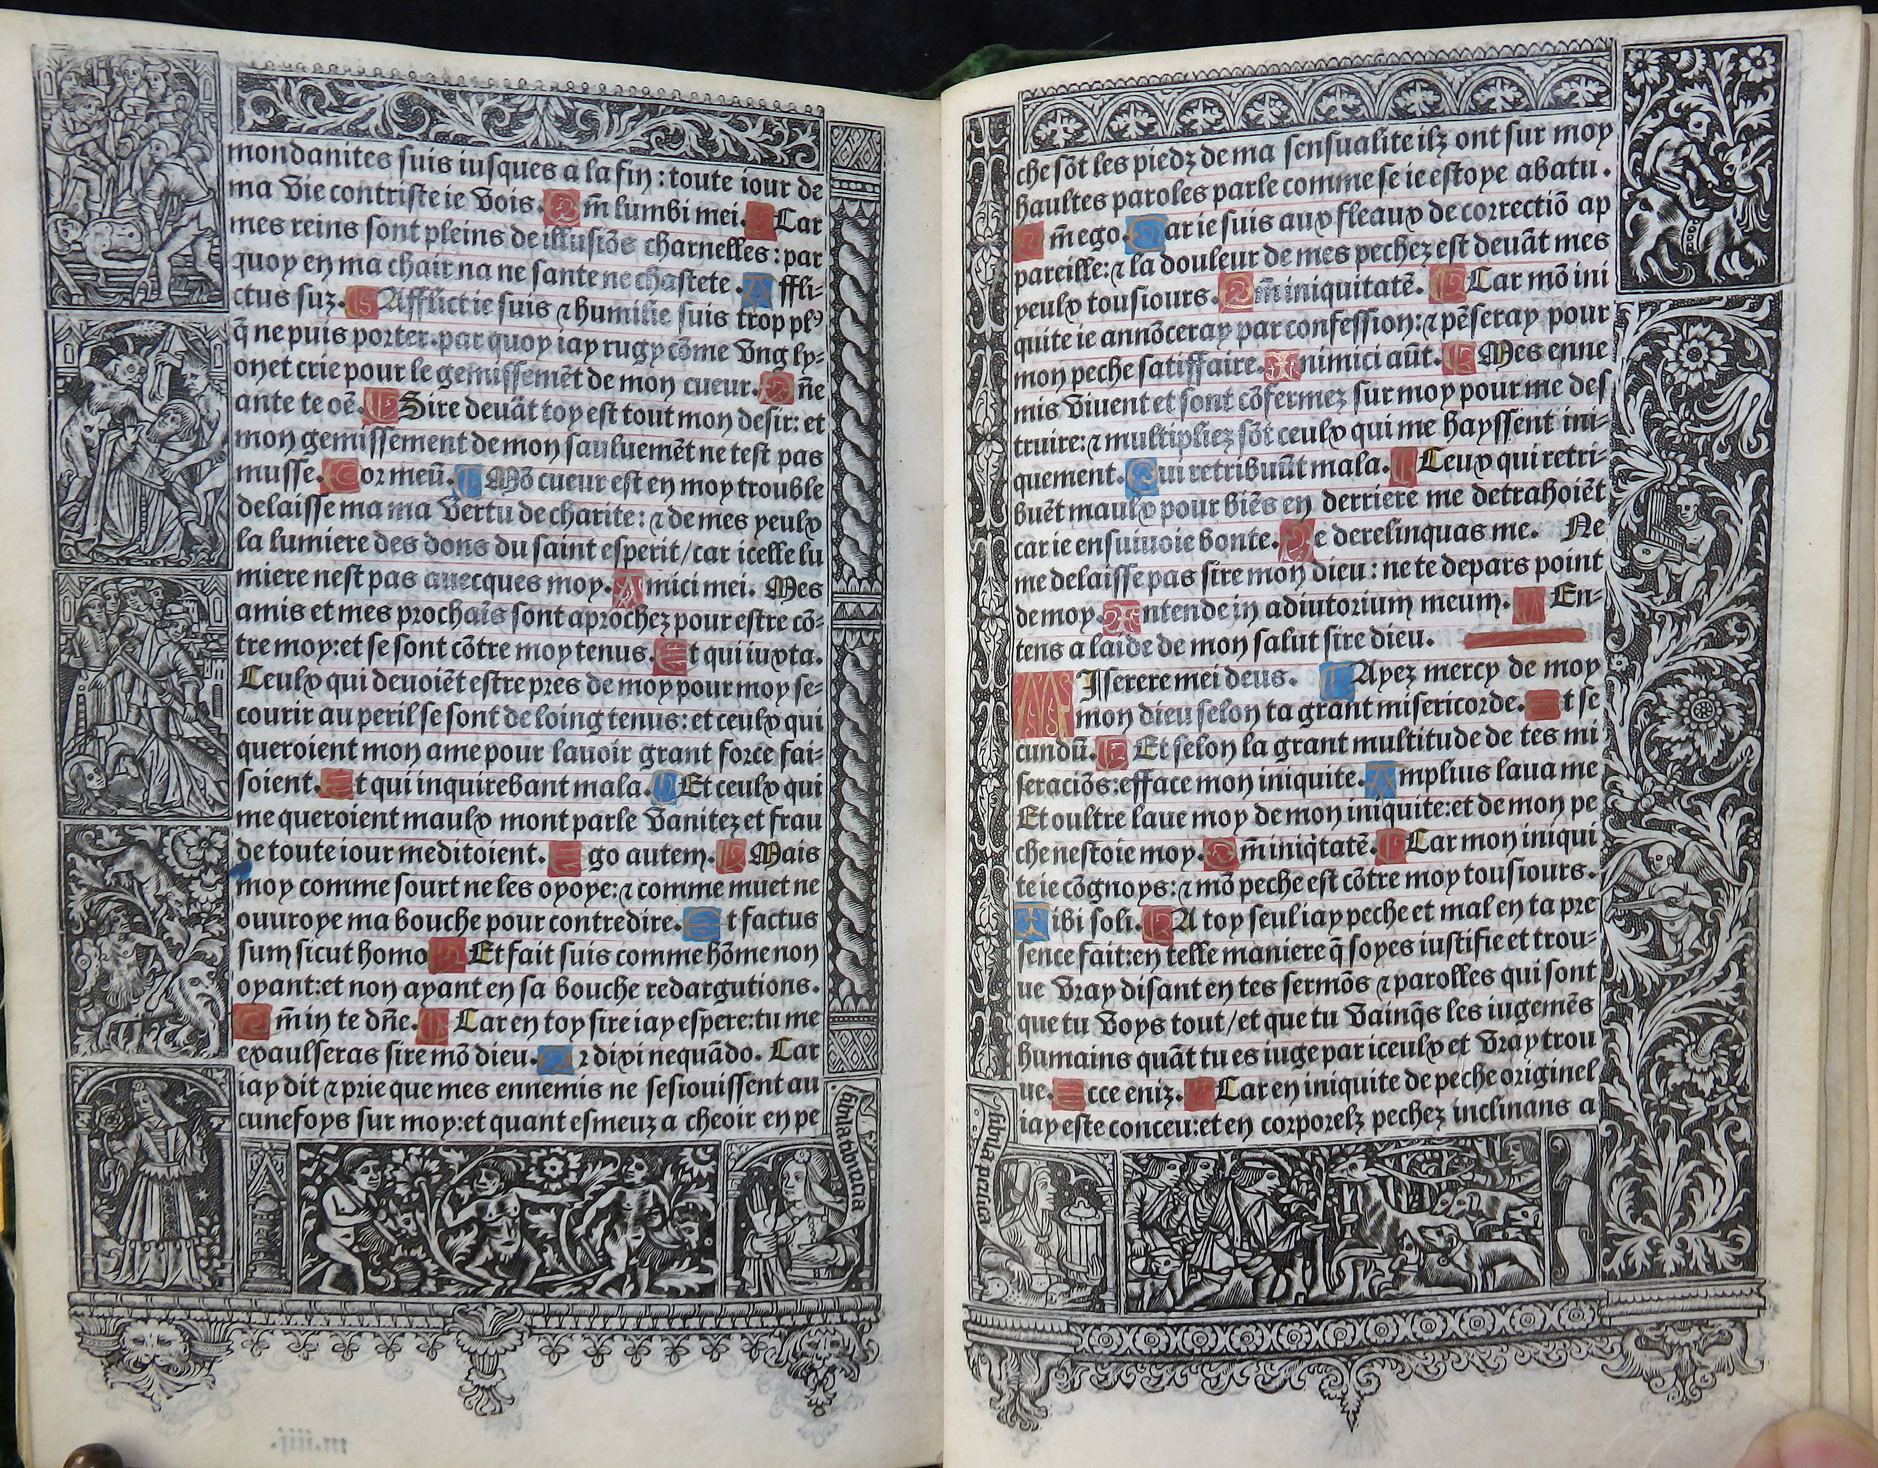 mondanites suis iusques a la fin : toute iour de
ma vie contriste ie vois. Qm̄ lumbi mei. Car
mes reins sont pleins de illusiōs charnelles : par
quoy en ma chair na ne sante ne chastete. Affli-
ctus suȝ. Afflict ie suis ⁊ humilie suis trop plꝰ
q̄ ne puis porter. par quoy iay rugy cōme vng ly-
on et crie pour le gemissemēt de mon cueur. Dn̄e
ante te oē. Sire deuāt toy est tout mon desir : et
mon gemissement de mon sauluemēt ne test pas
musse. Cor meū. Mō cueur est en moy trouble
delaisse ma ma vertu de charite : ⁊ de mes yeulx
la lumiere des dons du saint esperit/car icelle lu
miere nest pas auecques moy. Amici mei. Mes
amis et mes prochaīs sont aprochez pour estre cō-
tre moy:et se sont cōtre moy tenus. Et qui iuxta.
Ceulx qui deuoiēt estre pres de moy pour moy se-
courir au peril se sont de loing tenus : et ceulx qui
queroient mon ame pour lauoir grant force fai-
soient. Et qui inquirebant mala. Et ceulx qui
me queroient maulx mont parle vanitez et frau
de toute iour meditoient. Ego autem. Mais
moy comme sourt ne les oyoye:⁊ comme muet ne
ouuroye ma bouche pour contredire. Et factus
sum sicut homo Et fait suis comme hōme non
oyant:et non ayant en sa bouche redargutions.
Qm̄ in te dn̄e. Car en toy sire iay espere:tu me
exaulseras sire mō dieu. Qr dixi nequādo. Car
iay dit ⁊ prie que mes ennemis ne sesiouissent au
cunefoys sur moy:et quant esmeuz a cheoir en pe
m.iiij.
che sōt les piedz de ma sensualite ilz ont sur moy
haultes paroles parle comme se ie estoye abatu.
Qm̄ ego. Car ie suis aux fleaux de correctiō ap
pareille:⁊ la douleur de mes pechez est deuāt mes
yeulx tousiours. Qm̄ iniquitatē. Car mō ini
quite ie annōceray par confession:⁊ pēseray pour
mon peche satiffaire. Inimici aūt. Mes enne
mis viuent et sont cōfermez sur moy pour me des
truire:⁊ multipliez sōt ceulx qui me hayssent ini-
quement. Qui retribuūt mala. Ceux qui retri-
buēt maulx pour biēs en derriere me detrahoiēt
car ie ensuiuoie bonte. Ne derelinquas me. Ne
me delaisse pas sire mon dieu : ne te depars point
de moy. Intende in adiutorium meum. En-
tens a laide de mon salut sire dieu.
MIsserere mei deus. Ayez mercy de moy
mon dieu selon ta grant misericorde. Et se
cundū. Et selon la grant multitude de tes mi
seraciōs:efface mon iniquite. Amplius laua me
Et oultre laue moy de mon iniquite:et de mon pe
che nestoie moy. Qm̄ iniq̄tatē. Car mon iniqui
te ie cōgnoys:⁊ mō peche est cōtre moy tousiours.
Tibi soli. A toy seul iay peche et mal en ta pre
sence fait:en telle maniere q̄ soyes iustifie et trou-
ue vray disant en tes sermōs ⁊ parolles qui sont
que tu voys tout/et que tu vainq̄s les iugemēs
humains quāt tu es iuge par iceulx et vray trou
ue. Ecce eniȝ. Car en iniquite de peche originel
iay este conceu:et en corporelz pechez inclinans a